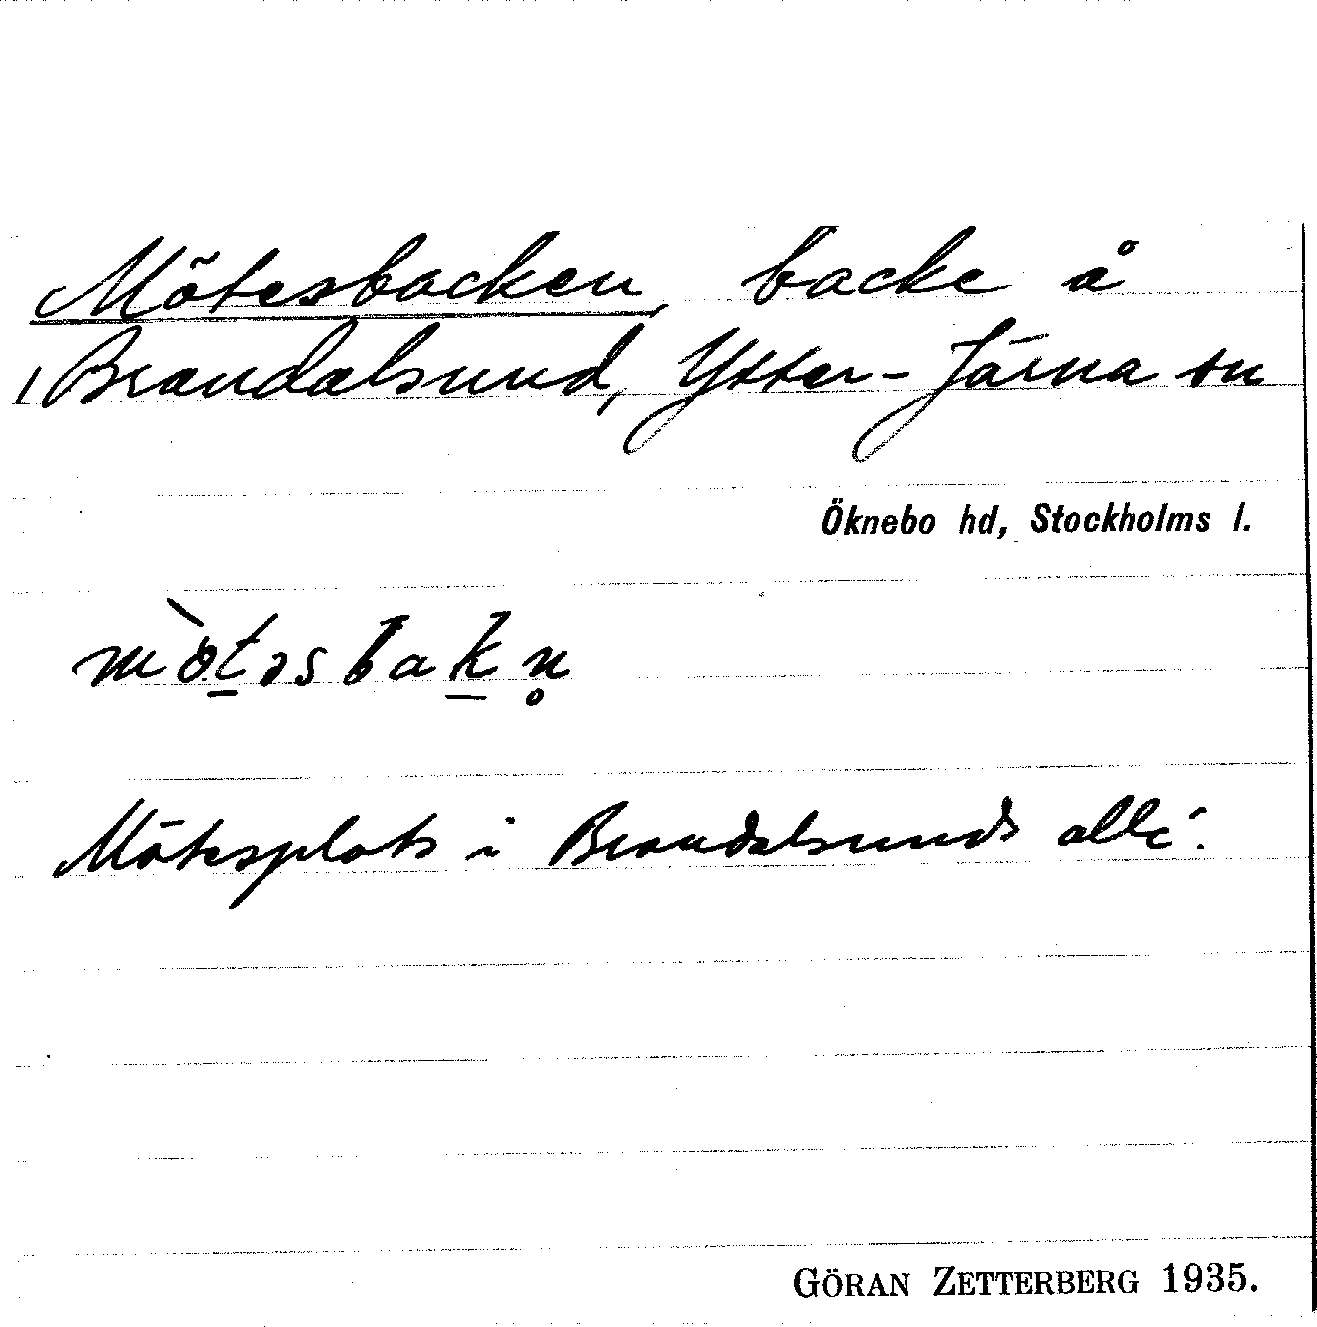 Mötesbacken, backe å
Brandalsund, Ytter-Järna sn
Öknebo hd, Stockholms l.
mò̱təsbaḵn̥
Mötesplats i Brandalsunds allé.
GÖRAN ZETTERBERG 1935.